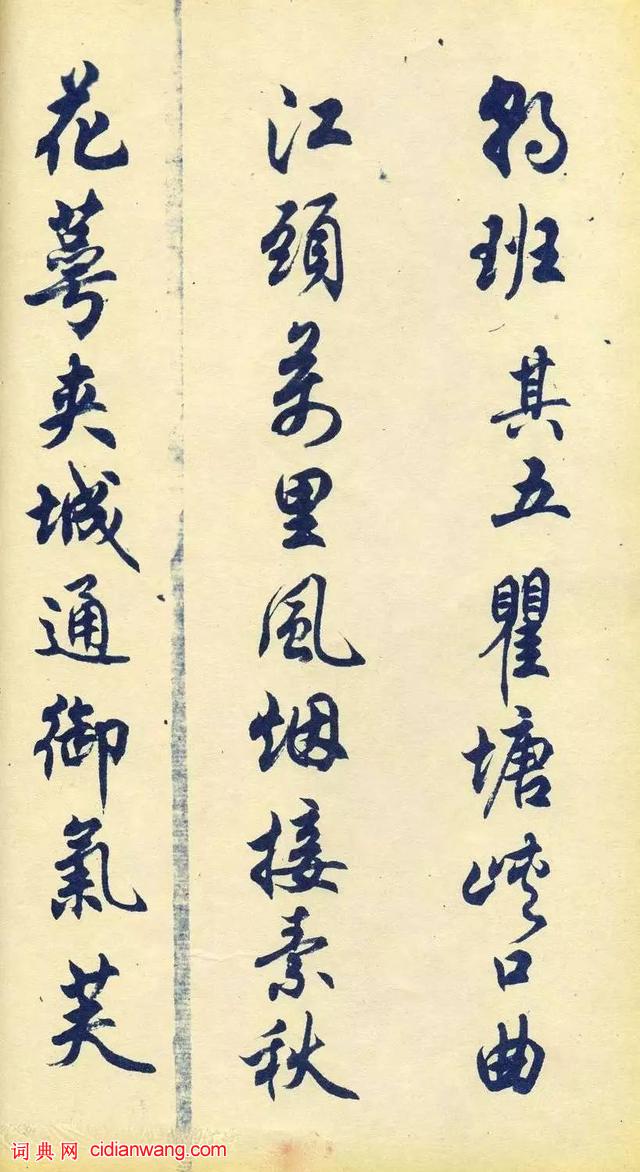 朝班其五瞿塘峽口曲
江頭萬里風烟接素秋
花萼夹城通御氣芙
词典网 cidianwang.com